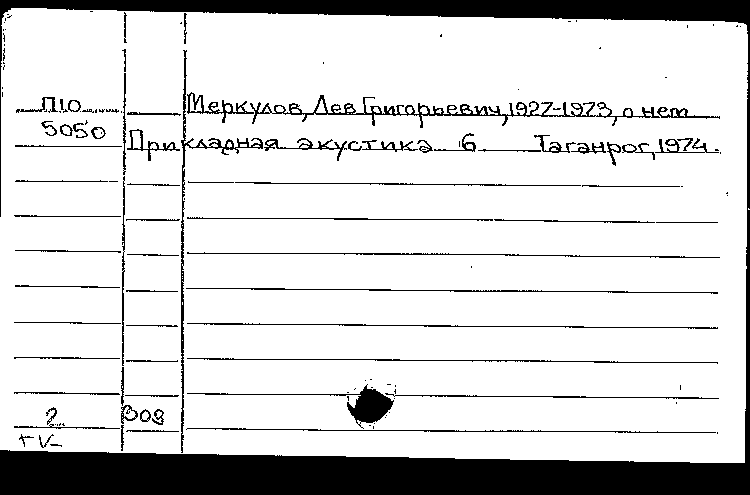 П10 Меркулов, Лев Григорьевич, 1927-1973, о нем
5050 Прикладная акустика 6. Таганрог, 1974.
2 308